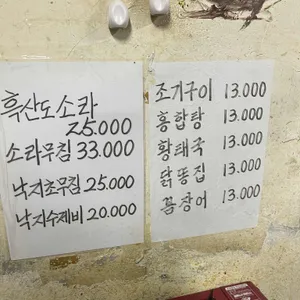 흑산도소라
25.000
소라무침 33.000
낙지초무침 25.000
낙지수제비 20.000
조기구이 13.000
홍합탕 13.000
황태국 13.000
닭똥집 13.000
꼼장어 13.000